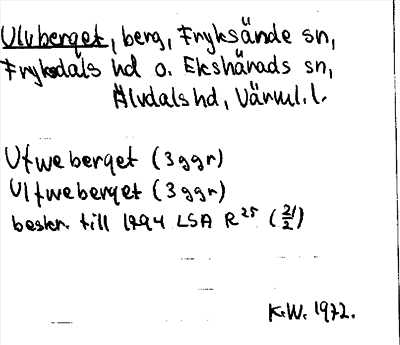 Ulvberget, berg, Fryksände sn,
Fryksdals hd o. Ekshärads sn,
Älvdals hd, Värml. l.
Ufweberget (3 ggr)
Ulfweberget (3 ggr)
beskr. till 1794 LSA R 25 (21/2)
K.W. 1972.